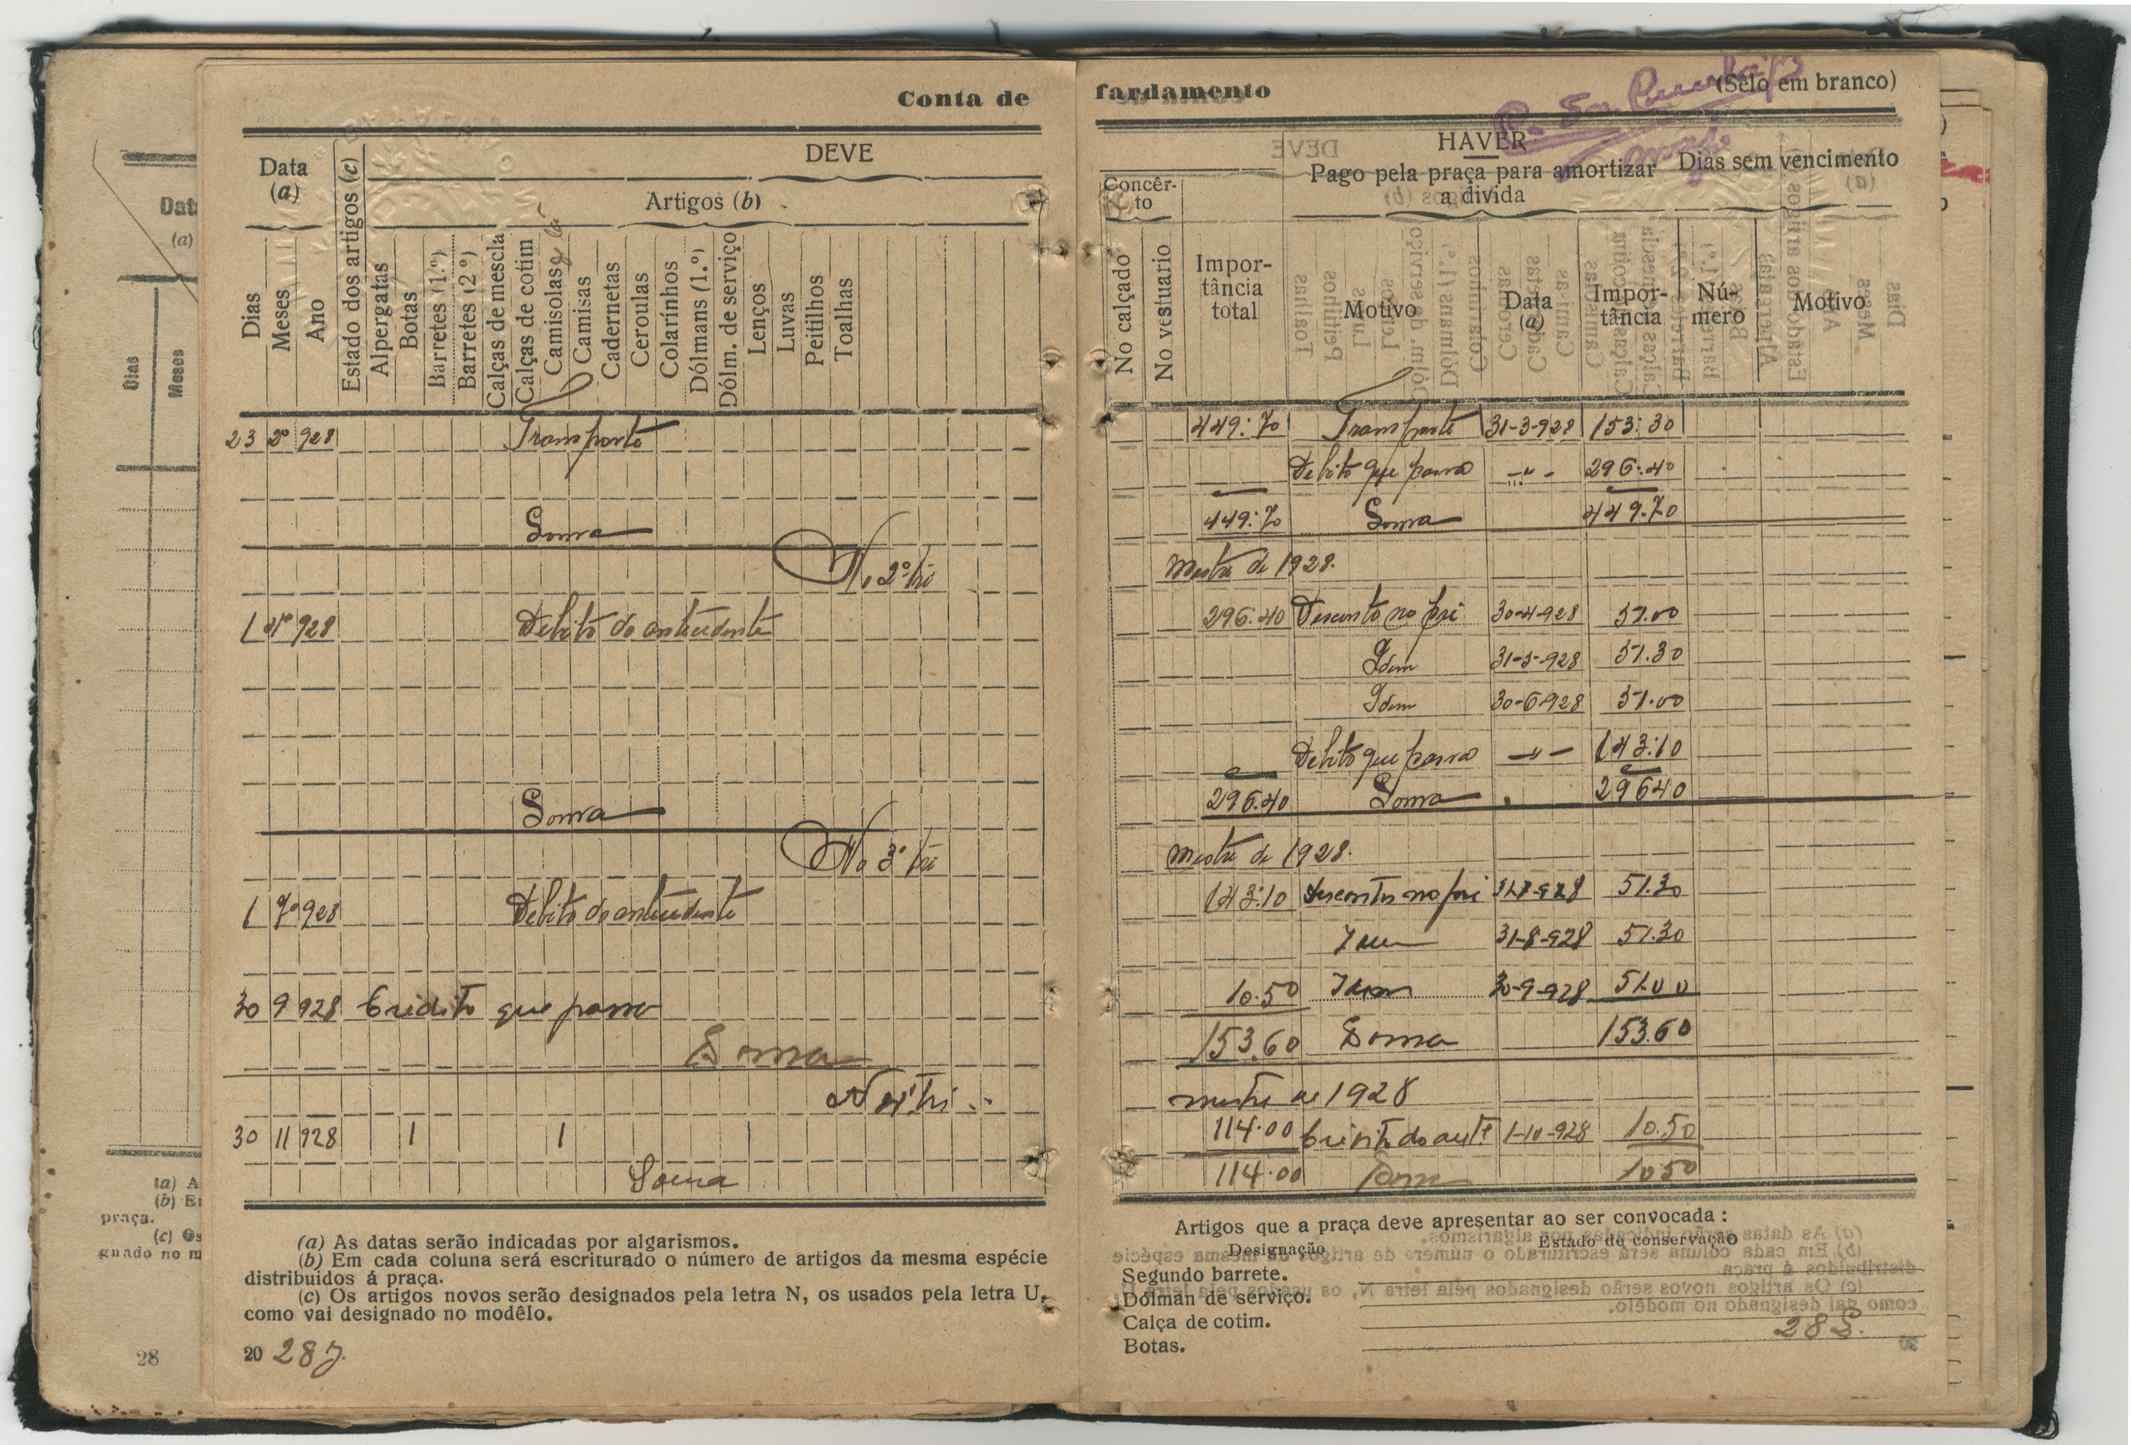 Conta de fardamento
(Sêlo em branco)
Data (a)
DEVE
Artigos (b)
Dias
Meses
Ano
Estado dos artigos (c)
Alpergatas
Botas
Barretes (1.º)
Barretes (2.º)
Calças de mescla
Calças de cotim
Camisolas
Camisas
Cadernetas
Ceroulas
Colarinhos
Dólmans (1.º)
Dólm. de serviço
Lenços
Luvas
Peitilhos
Toalhas
23 2º 928 Transporte
Soma
No 2º tri
1 4º 928 Debito do antecedente
Soma
No 3º tri
1 7º 928 Debito do antecedente
30 9 928 Credito que passa
Soma
No 4º tri
30 11 928 1 1
Soma
(a) As datas serão indicadas por algarismos.
(b) Em cada coluna será escriturado o número de artigos da mesma espécie
distribuidos á praça.
(c) Os artigos novos serão designados pela letra N, os usados pela letra U,
como vai designado no modêlo.
20
HAVER
Concêrto
Pago pela praça para amortizar
a divida
Dias sem vencimento
No calçado
No vestuario
Importância total
Motivo
Data (a)
Importância
Número
Motivo
449:70 Transporte 31-3-928 153:30
Debito que passa -"- 296:40
449:70 Soma 449.70
mestre de 1928.
296:40 Desconto no pré 30-4-928 51.00
Idem 31-5-928 51.30
Idem 30-6-928 51.00
Debito que passa -"- 143:10
296:40 Soma 29640
mestre de 1928.
143:10 Desconto no pré 31-7-928 51.30
Idem 31-8-928 51.30
10.50 Idem 30-9-928 51.00
153.60 Soma 153.60
mestre de 1928
114.00 Credito do antº 1-10-928 10.50
114.00 Soma 10.50
Artigos que a praça deve apresentar ao ser convocada :
Designação
Estado de conservação
Segundo barrete.
Dólman de serviço.
Calça de cotim.
Botas.
Data
(a)
Dias
Meses
praça.
28